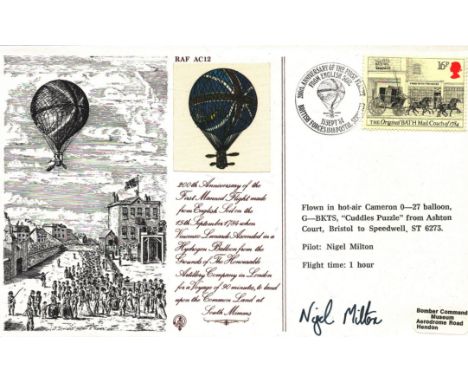 RAF AC12
200th Anniversary of the
First Manned Flight made
from English Soil on the
15th September 1784 when
Vincenzo Lunardi Ascended in a
Hydrogen Balloon from the
Grounds of The Honorable
Artillery Company in London
for a Voyage of 90 minutes, to land
upon the Common Land at
South Mimms
200th ANNIVERSARY OF THE FIRST FLIGHT
FROM ENGLISH SOIL
15 SEPT 84
BRITISH FORCES POSTAL SERVICE
16P
THE Original BATH Mail Coach of 1784
Flown in hot-air Cameron 0—27 balloon,
G—BKTS, "Cuddles Puzzle" from Ashton
Court, Bristol to Speedwell, ST 6275.
Pilot: Nigel Milton
Flight time: 1 hour
Nigel Milton
Bomber Command
Museum
Aerodrome Road
Hendon